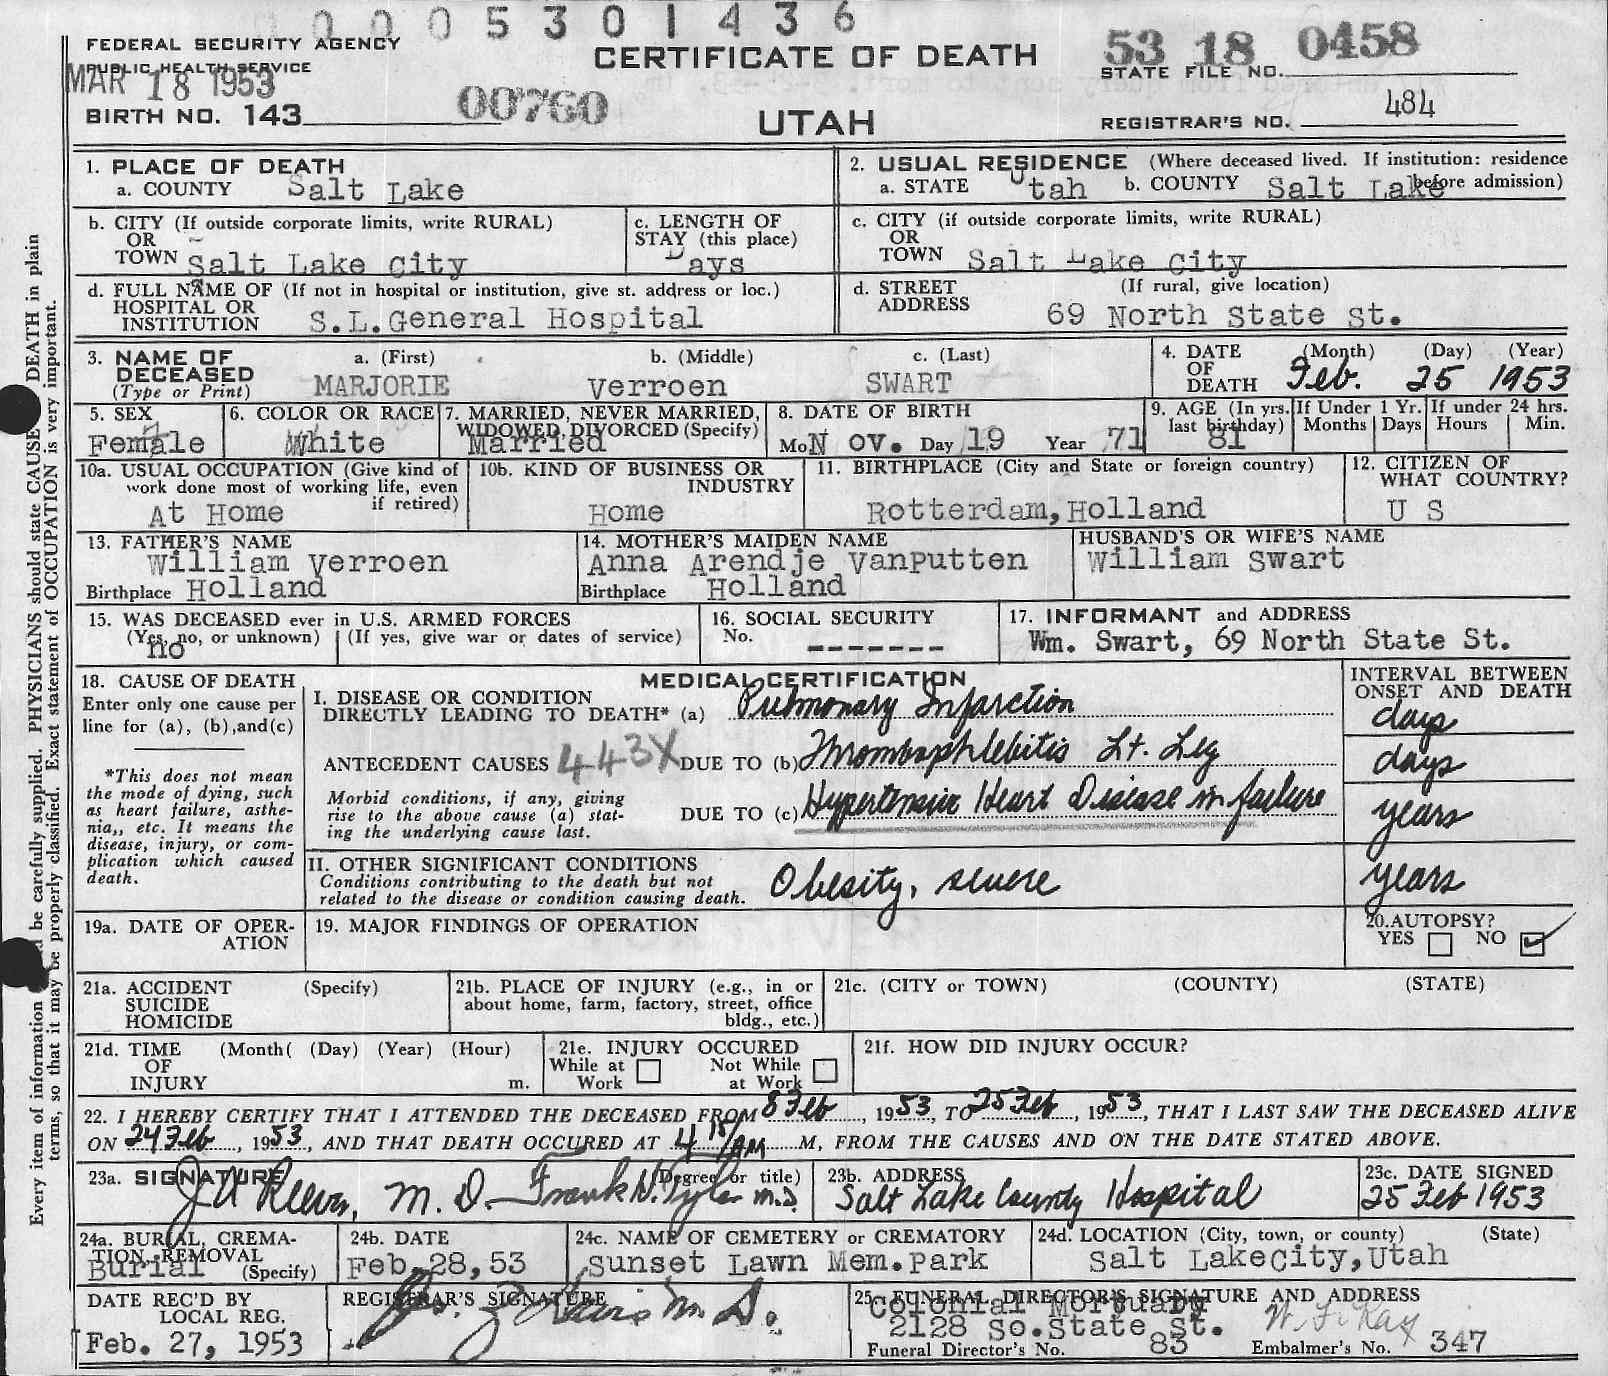 0 0 0 0 5 3 0 1 4 3 6
FEDERAL SECURITY AGENCY
PUBLIC HEALTH SERVICE
MAR 18 1953
BIRTH NO. 143
00760
CERTIFICATE OF DEATH
UTAH
53 18 0458
STATE FILE NO.
REGISTRAR'S NO. 484
1. PLACE OF DEATH
a. COUNTY Salt Lake
2. USUAL RESIDENCE (Where deceased lived. If institution: residence before admission)
a. STATE Utah b. COUNTY Salt Lake
b. CITY (If outside corporate limits, write RURAL)
OR
TOWN Salt Lake City
c. LENGTH OF
STAY (this place)
Days
c. CITY (if outside corporate limits, write RURAL)
OR
TOWN Salt Lake City
d. FULL NAME OF (If not in hospital or institution, give st. address or loc.)
HOSPITAL OR
INSTITUTION S.L.General Hospital
d. STREET (If rural, give location)
ADDRESS 69 North State St.
3. NAME OF
DECEASED
(Type or Print)
a. (First) b. (Middle) c. (Last)
MARJORIE Verroen SWART
4. DATE
OF
DEATH
(Month) (Day) (Year)
Feb. 25 1953
5. SEX
Female
6. COLOR OR RACE
White
7. MARRIED, NEVER MARRIED,
WIDOWED, DIVORCED (Specify)
Married
8. DATE OF BIRTH
Mo Nov. Day 19 Year 71
9. AGE (In yrs.
last birthday)
81
If Under 1 Yr.
Months Days
If under 24 hrs.
Hours Min.
10a. USUAL OCCUPATION (Give kind of
work done most of working life, even
if retired)
At Home
10b. KIND OF BUSINESS OR
INDUSTRY
Home
11. BIRTHPLACE (City and State or foreign country)
Rotterdam,Holland
12. CITIZEN OF
WHAT COUNTRY?
U S
13. FATHER'S NAME
William Verroen
Birthplace Holland
14. MOTHER'S MAIDEN NAME
Anna Arendje VanPutten
Birthplace Holland
HUSBAND'S OR WIFE'S NAME
William Swart
15. WAS DECEASED ever in U.S. ARMED FORCES
(Yes, no, or unknown) (If yes, give war or dates of service)
no
16. SOCIAL SECURITY
No. -------
17. INFORMANT and ADDRESS
Wm. Swart, 69 North State St.
18. CAUSE OF DEATH
Enter only one cause per
line for (a), (b),and(c)
*This does not mean
the mode of dying, such
as heart failure, asthe-
nia,, etc. It means the
disease, injury, or com-
plication which caused
death.
MEDICAL CERTIFICATION
I. DISEASE OR CONDITION
DIRECTLY LEADING TO DEATH* (a) Pulmonary Infarction
ANTECEDENT CAUSES 443X DUE TO (b) Thrombophlebitis Lt. Leg
Morbid conditions, if any, giving
rise to the above cause (a) stat-
ing the underlying cause last.
DUE TO (c) Hypertensive Heart Disease in failure
INTERVAL BETWEEN
ONSET AND DEATH
days
days
years
II. OTHER SIGNIFICANT CONDITIONS
Conditions contributing to the death but not
related to the disease or condition causing death.
Obesity, severe
years
19a. DATE OF OPER-
ATION
19. MAJOR FINDINGS OF OPERATION
20.AUTOPSY?
YES NO
21a. ACCIDENT (Specify)
SUICIDE
HOMICIDE
21b. PLACE OF INJURY (e.g., in or
about home, farm, factory, street, office
bldg., etc.)
21c. (CITY or TOWN) (COUNTY) (STATE)
21d. TIME (Month( (Day) (Year) (Hour)
OF
INJURY m.
21e. INJURY OCCURED
While at Not While
Work at Work
21f. HOW DID INJURY OCCUR?
22. I HEREBY CERTIFY THAT I ATTENDED THE DECEASED FROM 8 Feb, 1953, TO 25 Feb, 1953, THAT I LAST SAW THE DECEASED ALIVE
ON 24 Feb, 1953, AND THAT DEATH OCCURED AT 4 15/AM M, FROM THE CAUSES AND ON THE DATE STATED ABOVE.
23a. SIGNATURE (Degree or title)
M. D. Frank H. Tyler M.D.
23b. ADDRESS
Salt Lake County Hospital
23c. DATE SIGNED
25 Feb 1953
24a. BURIAL, CREMA-
TION, REMOVAL
Burial (Specify)
24b. DATE
Feb.28,53
24c. NAME OF CEMETERY or CREMATORY
Sunset Lawn Mem.Park
24d. LOCATION (City, town, or county) (State)
Salt LakeCity,Utah
DATE REC'D BY
LOCAL REG.
Feb. 27, 1953
REGISTRAR'S SIGNATURE
M. D.
25. FUNERAL DIRECTOR'S SIGNATURE AND ADDRESS
Colonial Mortuary
2128 So.State St.
Funeral Director's No. 83 Embalmer's No. 347
Every item of information be carefully supplied. PHYSICIANS should state CAUSE DEATH in plain
terms, so that it may be properly classified. Exact statement of OCCUPATION is very important.